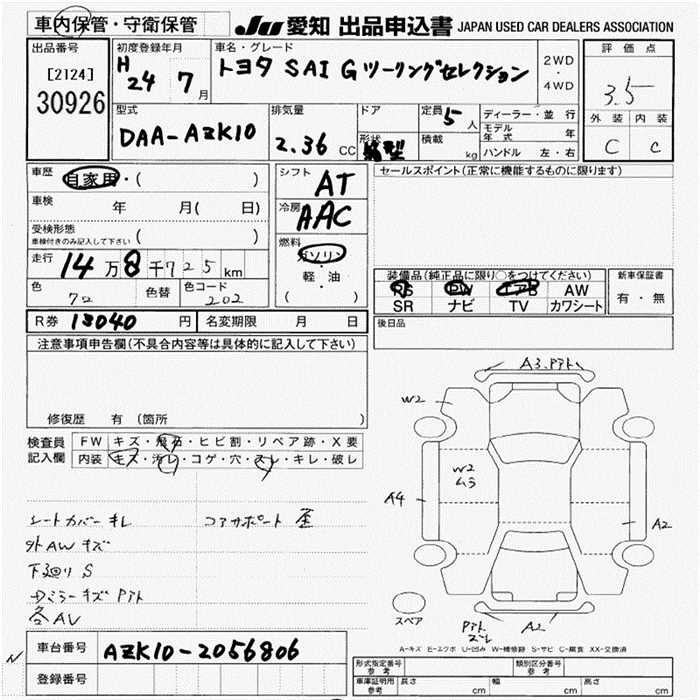 車内保管・守衛保管
JU 愛知 出品申込書 JAPAN USED CAR DEALERS ASSOCIATION
出品番号
[2124]
30926
初度登録年月
H 24 7月
車名・グレード
トヨタ SAI G ツーリングセレクション
2WD
・
4WD
評価点
3.5
外装 内装
C c
型式
DAA-AZK10
排気量
2.36 CC
ドア
形状
箱型
定員 5人
積載 kg
ディーラー・並行
モデル年式 年
ハンドル 左・右
車歴 自家用・( )
車検 年 月( 日)
受検形態
車検付きのみ記入して下さい ( )
走行 14万8千725km
色 70 色替 色コード 202
シフト AT
冷房 AAC
燃料
ガソリン
・
軽・油
( )
セールスポイント(正常に機能するものに限ります)
装備品(純正品に限り○をつけてください)
PS PW エアB AW
SR ナビ TV カワシート
新車保証書
有・無
R券 13040 円 名変期限 月 日
後日品
注意事項申告欄(不具合内容等は具体的に記入して下さい)
修復歴 有 (箇所 )
検査員記入欄
FW キズ・飛石・ヒビ割・リペア跡・X要
内装 キズ・汚レ・コゲ・穴・スレ・キレ・破レ
シートカバーキレ コアサポート歪
外AWキズ
下廻りS
ミラーキズアト
各AU
A3、アト
W2
W2
ムラ
A4
A2
スペア
A2
A-キズ E-エクボ U-凹み W-補修跡 S-サビ C-腐食 XX-交換済
車台番号 AZK10-2056806
登録番号
形式指定番号
参考
類別区分番号
参考
車庫証明用
参考
長さ cm 幅 cm 高さ cm